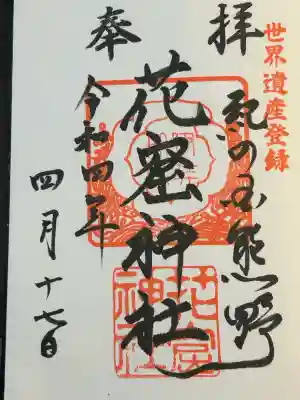 世界遺産登録
奉拝
死の国熊野
花窟神社
令和四年
四月十七日
花窟神社